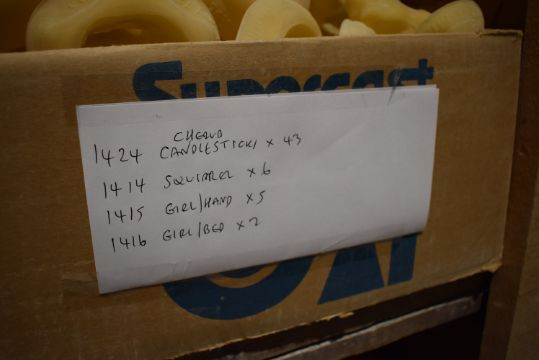 Supercast
CHERUB
1424 CANDLESTICKS x 43
1414 SQUIRREL x 6
1415 GIRL/HAND x 5
1416 GIRL/BED x 2